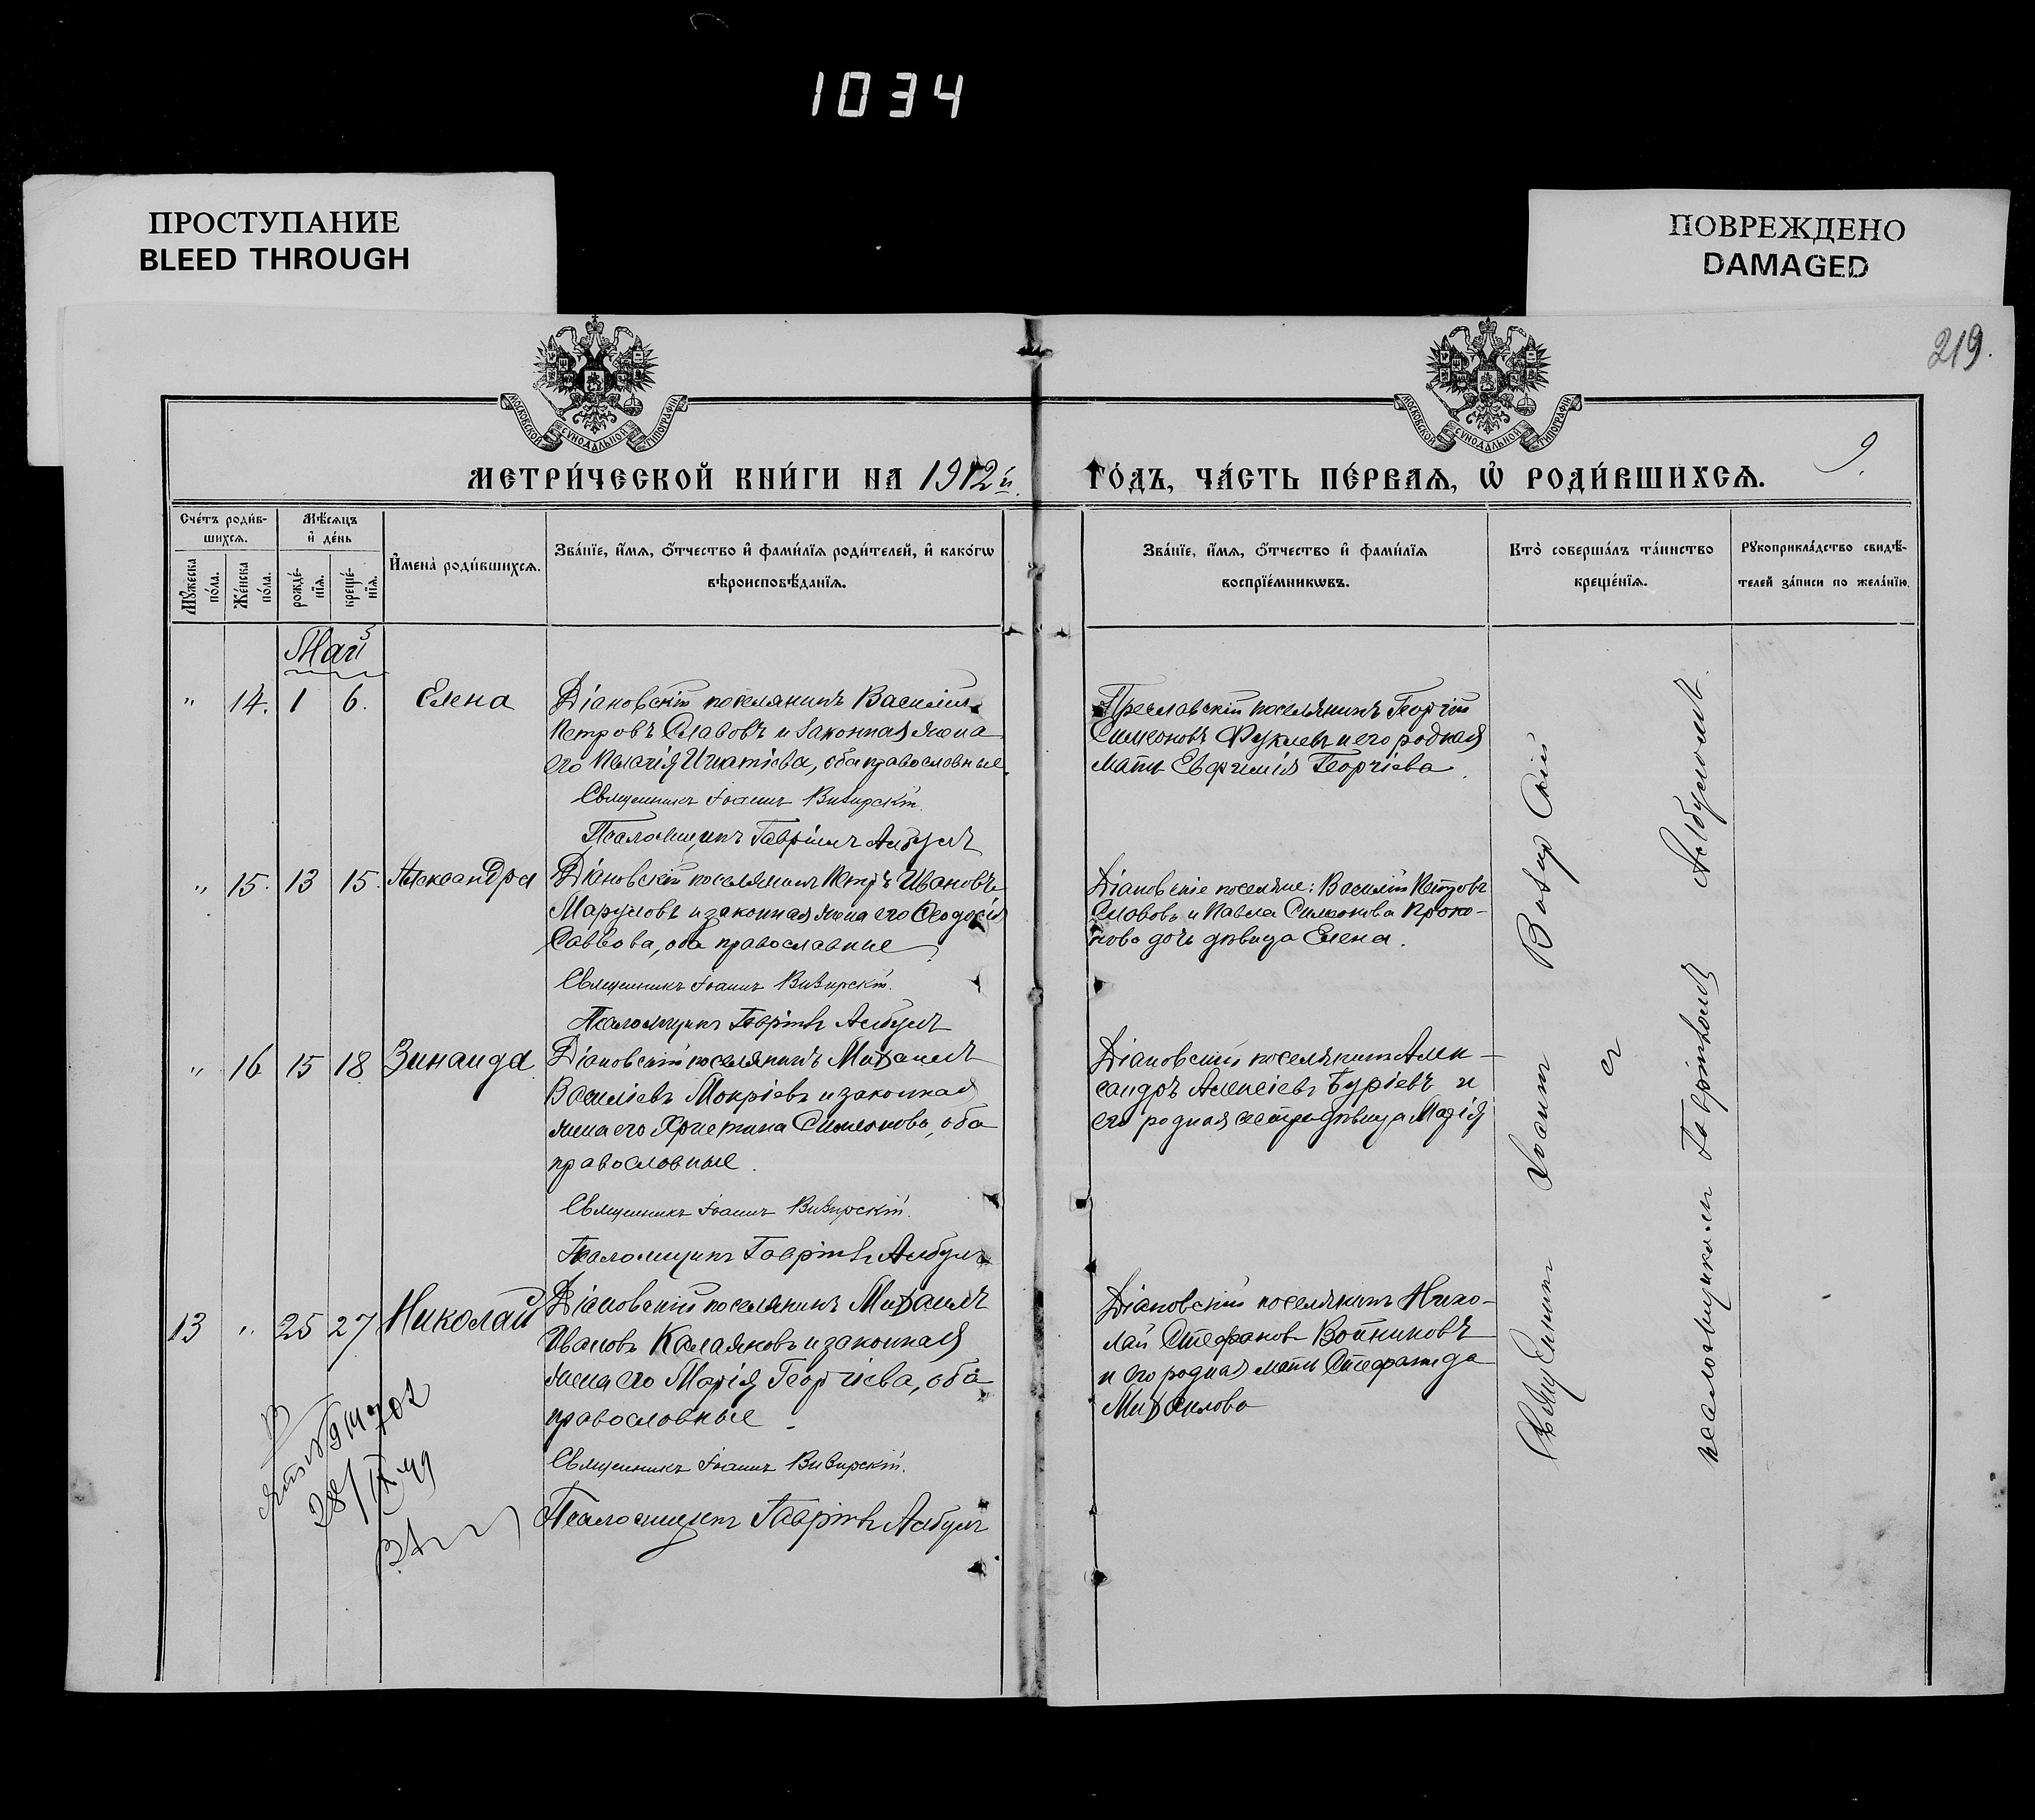 1034
ПРОСТУПАНИЕ
BLEED THROUGH
ПОВРЕЖДЕНО
DAMAGED
219.
МОСКОВСКОЙ СѴНОДАЛЬНОЙ ТИПОГРАФІИ
МОСКОВСКОЙ СѴНОДАЛЬНОЙ ТИПОГРАФІИ
9.
МЕТРИ́ЧЕСКОЙ КНИ́ГИ НА 1912й ГО́ДЪ, ЧА́СТЬ ПЕ́РВАѦ, Ѡ҆ РОДИ́ВШИХСѦ.
Сче́тъ роди́в-
шихсѧ.
Мꙋ́жеска по́ла.
Же́нска по́ла.
Мѣ́сѧцъ
и҆ де́нь
рожде́-
нїѧ.
креще́-
нїѧ.
И҆мена̀ роди́вшихсѧ.
Зва́нїе, и҆́мѧ, ѻ҆́тчество и҆ фами́лїѧ роди́телей, и҆ како́гѡ
вѣроисповѣ́данїѧ.
Зва́нїе, и҆́мѧ, ѻ҆́тчество и҆ фами́лїѧ
воспрїе́мникѡвъ.
Кто̀ соверша́лъ та́инство
креще́нїѧ.
Рꙋкоприкла́дство свидѣ́-
телей за́писи по жела́нїю.
Май
" 14. 1 6. Елена
Діановскій поселянинъ Василій
Петровъ Славовъ и законная жена
его Пелагія Игнатіева, оба православные.
Священникъ Іоаннъ Визирскій.
Псаломщикъ Гавріилъ Албулъ
Преславскій поселянинъ Георгій
Симеоновъ Фуклевъ и его родная
мать Евфимія Георгіева.
" 15. 13 15. Александра
Діановскій поселянинъ Петръ Ивановъ
Маруловъ и законная жена его Ѳеодосія
Саввова, оба православные
Священникъ Іоаннъ Визирскій.
Псаломщикъ Гавріилъ Албулъ
Діановскіе поселяне: Василій Петровъ
Славовъ и Павла Симеонова Проко-
пова дочь дѣвица Елена.
" 16 15 18 Зинаида
Діановскій поселянинъ Михаилъ
Василіевъ Мокріевъ и законная
жена его Христина Симеонова, оба
православные.
Священникъ Іоаннъ Визирскій.
Псаломщикъ Гавріилъ Албулъ
Діановскій поселянинъ Алек-
сандръ Алексіевъ Буріевъ и
его родная сестра дѣвица Марія
13 " 25 27 Николай
Діановскій поселянинъ Михаилъ
Ивановъ Калаяновъ и законная
жена его Марія Георгіева, оба
православные
Священникъ Іоаннъ Визирскій.
Псаломщикъ Гавріилъ Албулъ
Діановскій поселянинъ Нико-
лай Стефановъ Войниковъ
и его родная мать Стефанида
Михаилова
28/IX-49
Священникъ Іоаннъ Визирскій
съ
псаломщикомъ Гавріиломъ Албуломъ.